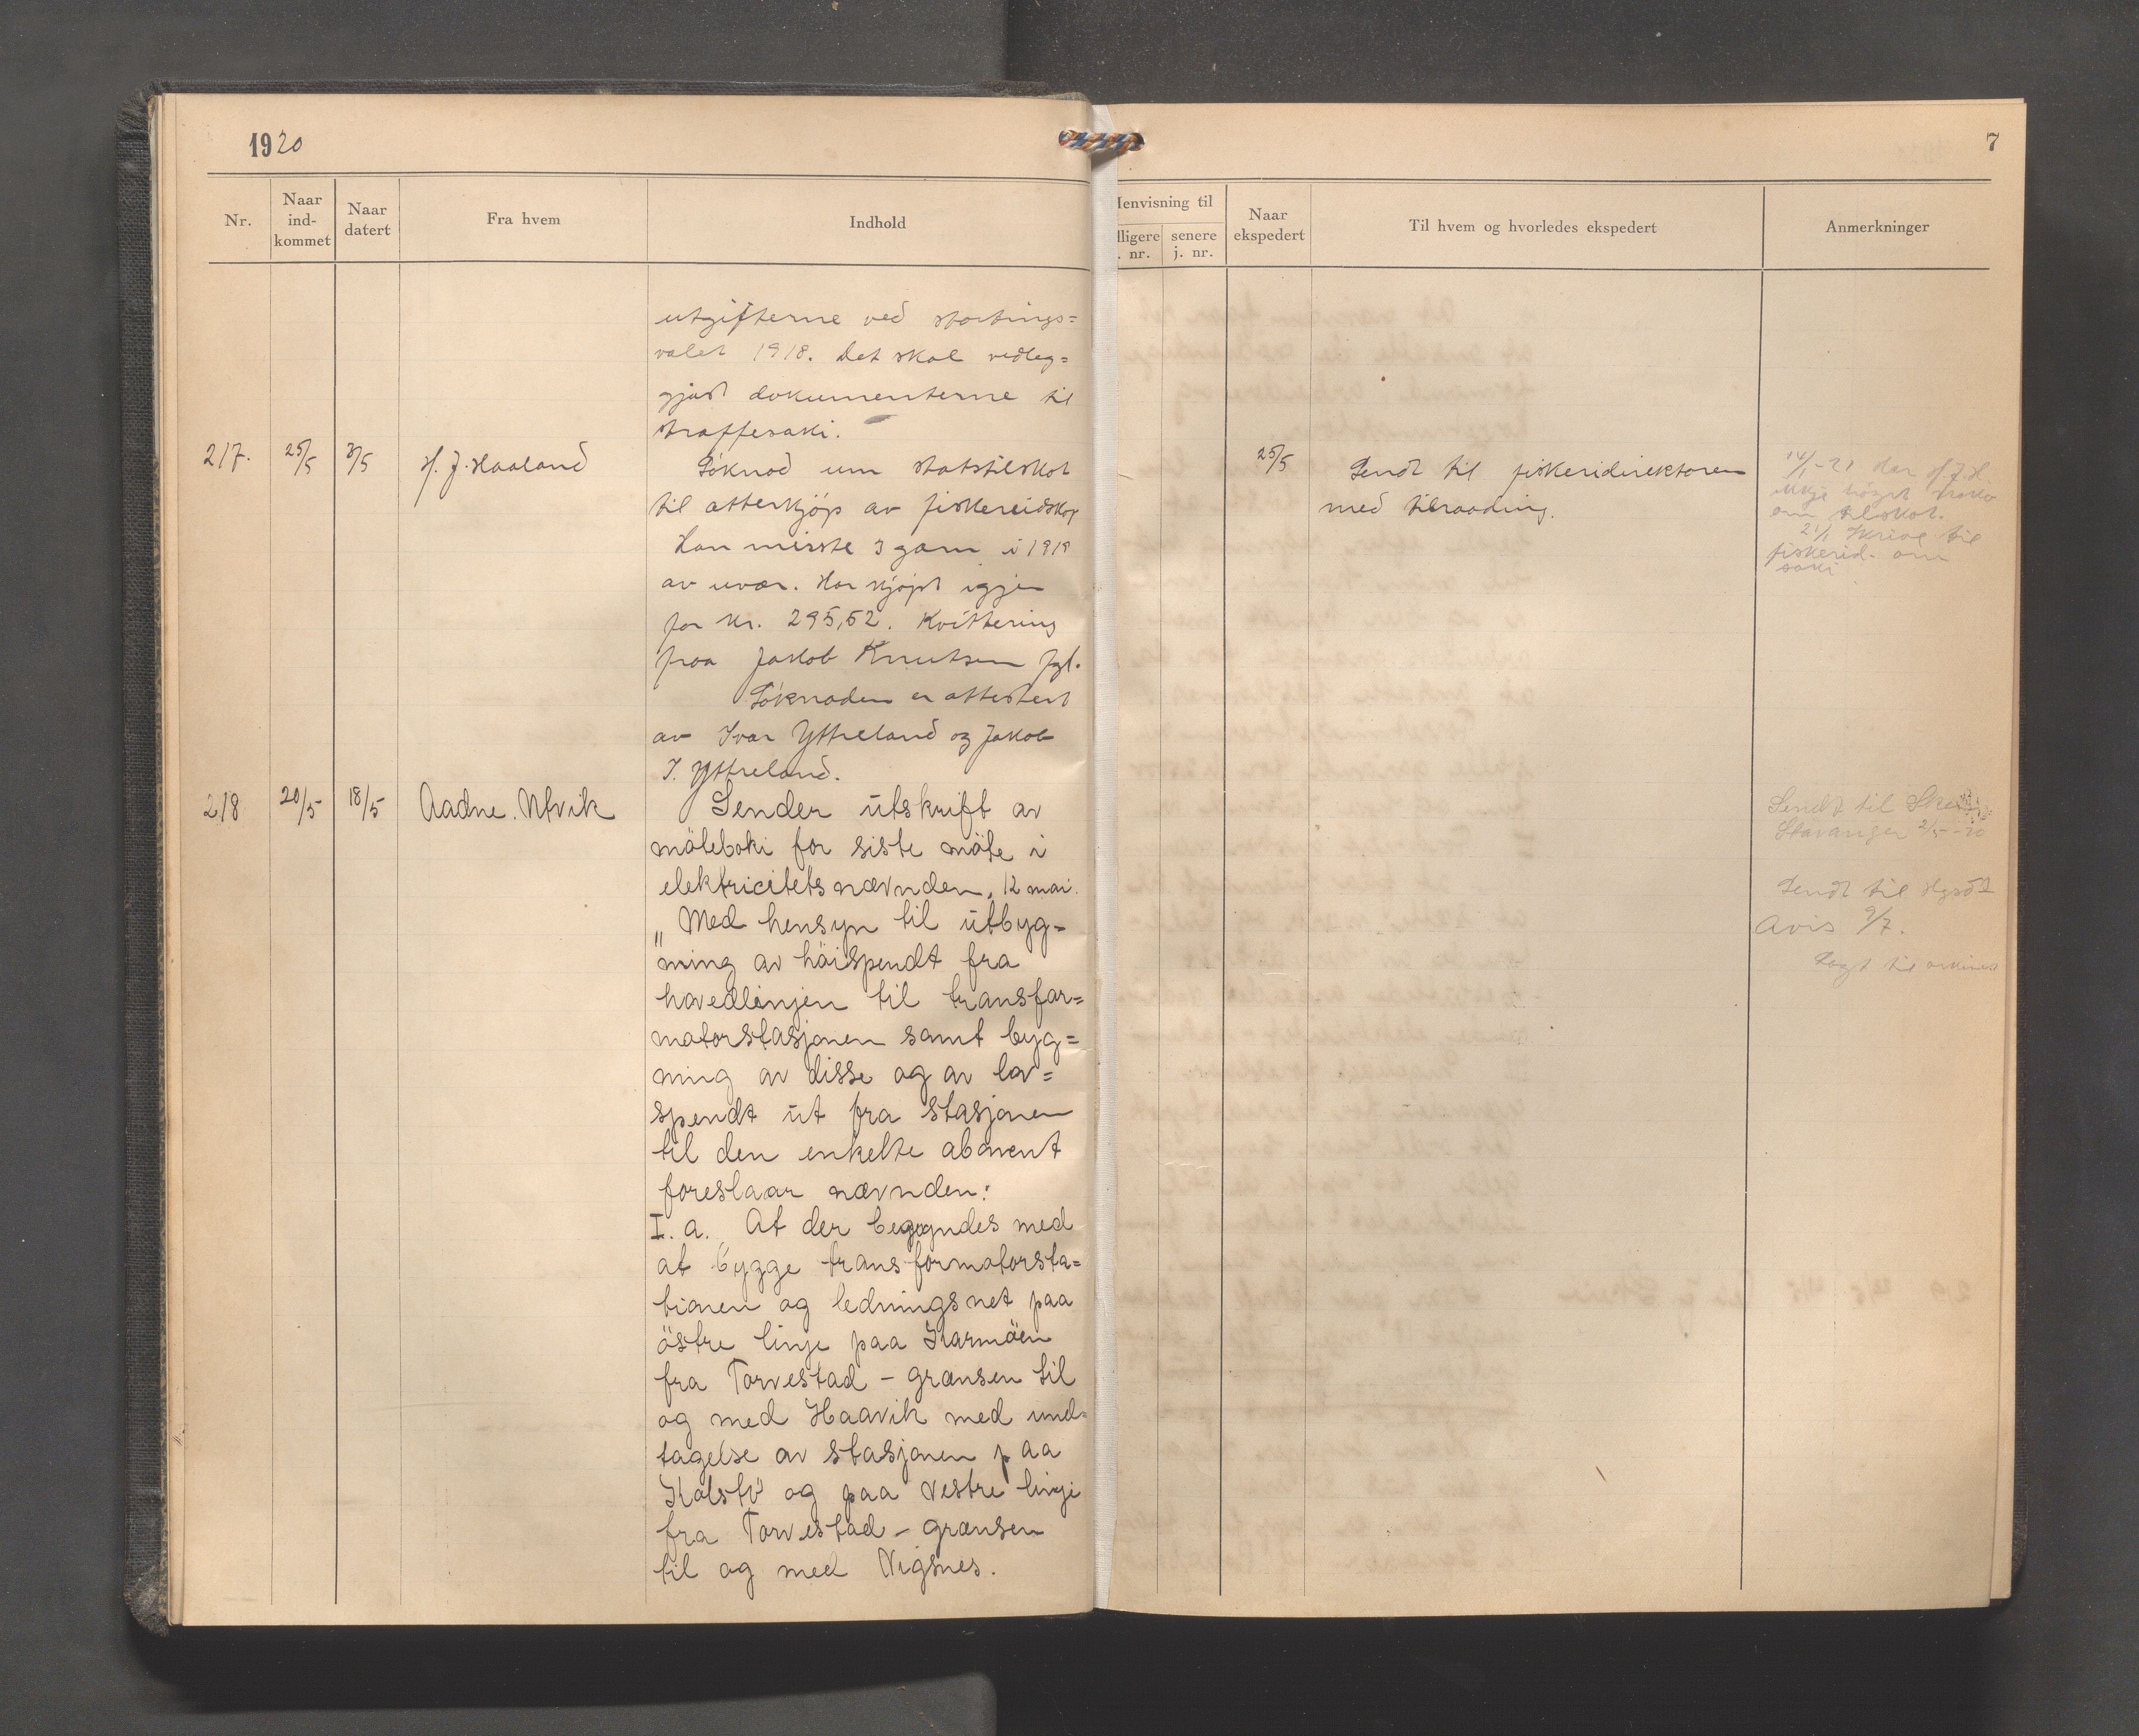 1920
7
Nr.
Naar ind- kommet
Naar datert
Fra hvem
Indhold
Henvisning til
dligere j. nr.
senere j. nr.
Naar ekspedert
Til hvem og hvorledes ekspedert
Anmerkninger
utgifterne ved stortings=
valet 1918. Det skal vedleg=
gjast dokumenterne til
straffesaki.
217. 25/5 3/5 H. J. Haaland
Søknad um statstilskot
til atterkjøp av fiskereidskap
Han misste 3 garn i 1919
av uvær. Har kjøpt igjen
for kr. 295,52. Kvittering
fraa Jakob Knutsen fyl.
Søknaden er attestert
av Ivar Ytreland og Jakob
I. Ytreland.
25/5 Sendt til fiskeridirektoren
med tilraading.
14/1-21 Har H.J.H.
ikkje høyrt noko
om tilskot.
21/1 Skrive til
fiskerid. om
saki
218 20/5 18/5 Aadne. Utvik
Sender utskrift av
møteboki for siste møte i
elektricitetsnævnden, 12 mai.
„Med hensyn til utbyg=
ning av høispendt fra
hovedlinjen til transfor=
matorstasjonen samt byg=
ning av disse og av lav=
spendt ut fra stasjonen
til den enkelte abonent
foreslaar nævnden:
I. a. At der begyndes med
at bygge transformatorsta=
tionen og ledningsnet paa
østre linje paa Karmøen
fra Torvestad - grænsen til
og med Haavik med und=
tagelse av stasjonen paa
Kolstø og paa vestre linje
fra Torvestad - grænsen
til og med Vigsnes.
Sendt til
Stavanger 2/5-20
Sendt til Hgsd
Avis 9/7.
Lagt til arkivet